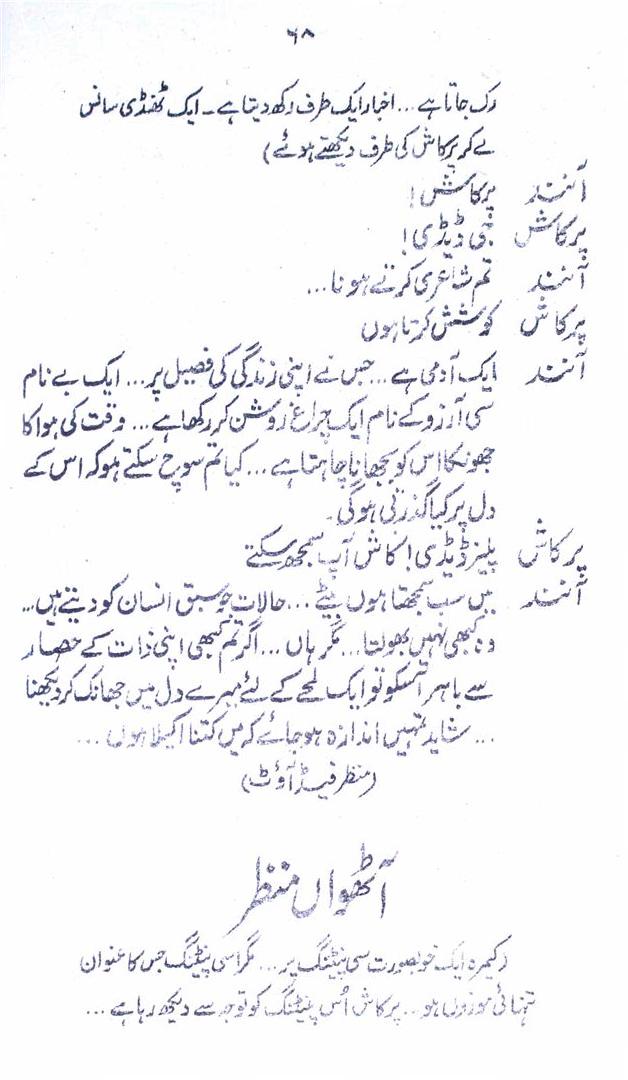 ۶۸
رک جاتا ہے... اخبار ایک طرف رکھ دیتا ہے۔ ایک ٹھنڈی سانس
لے کر پرکاش کی طرف دیکھتے ہوئے)
آنند پرکاش!
پرکاش جی ڈیڈی!
آنند تم شاعری کرتے ہو نا...
پرکاش کوشش کرتا ہوں
آنند ایک آدمی ہے... جس نے اپنی زندگی کی فصیل پر... ایک بے نام
سی آرزو کے نام ایک چراغ روشن کر رکھا ہے... وقت کی ہوا کا
جھونکا اس کو بجھانا چاہتا ہے... کیا تم سوچ سکتے ہو کہ اس کے
دل پر کیا گذرتی ہوگی۔
پرکاش پلیز ڈیڈی! کاش آپ سمجھ سکتے
آنند میں سب سمجھتا ہوں بیٹے... حالات جو سبق انسان کو دیتے ہیں...
وہ کبھی نہیں بھولتا... مگر ہاں... اگر تم کبھی اپنی ذات کے حصار
سے باہر آسکو تو ایک لمحے کے لئے میرے دل میں جھانک کر دیکھنا
... شاید تمہیں اندازہ ہو جائے کہ میں کتنا اکیلا ہوں...
(منظر فیڈ آؤٹ)
آٹھواں منظر
(کیمرہ ایک خوبصورت سی پنٹنگ پر... مگر اسی پنٹنگ جس کا عنوان
تنہائی موزوں ہو... پرکاش اُس پنٹنگ کو توجہ سے دیکھ رہا ہے...